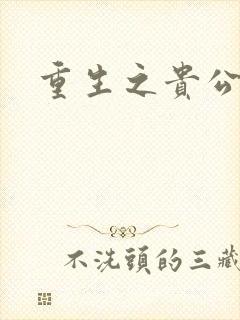 重生之貴公
不洗頭的三藏